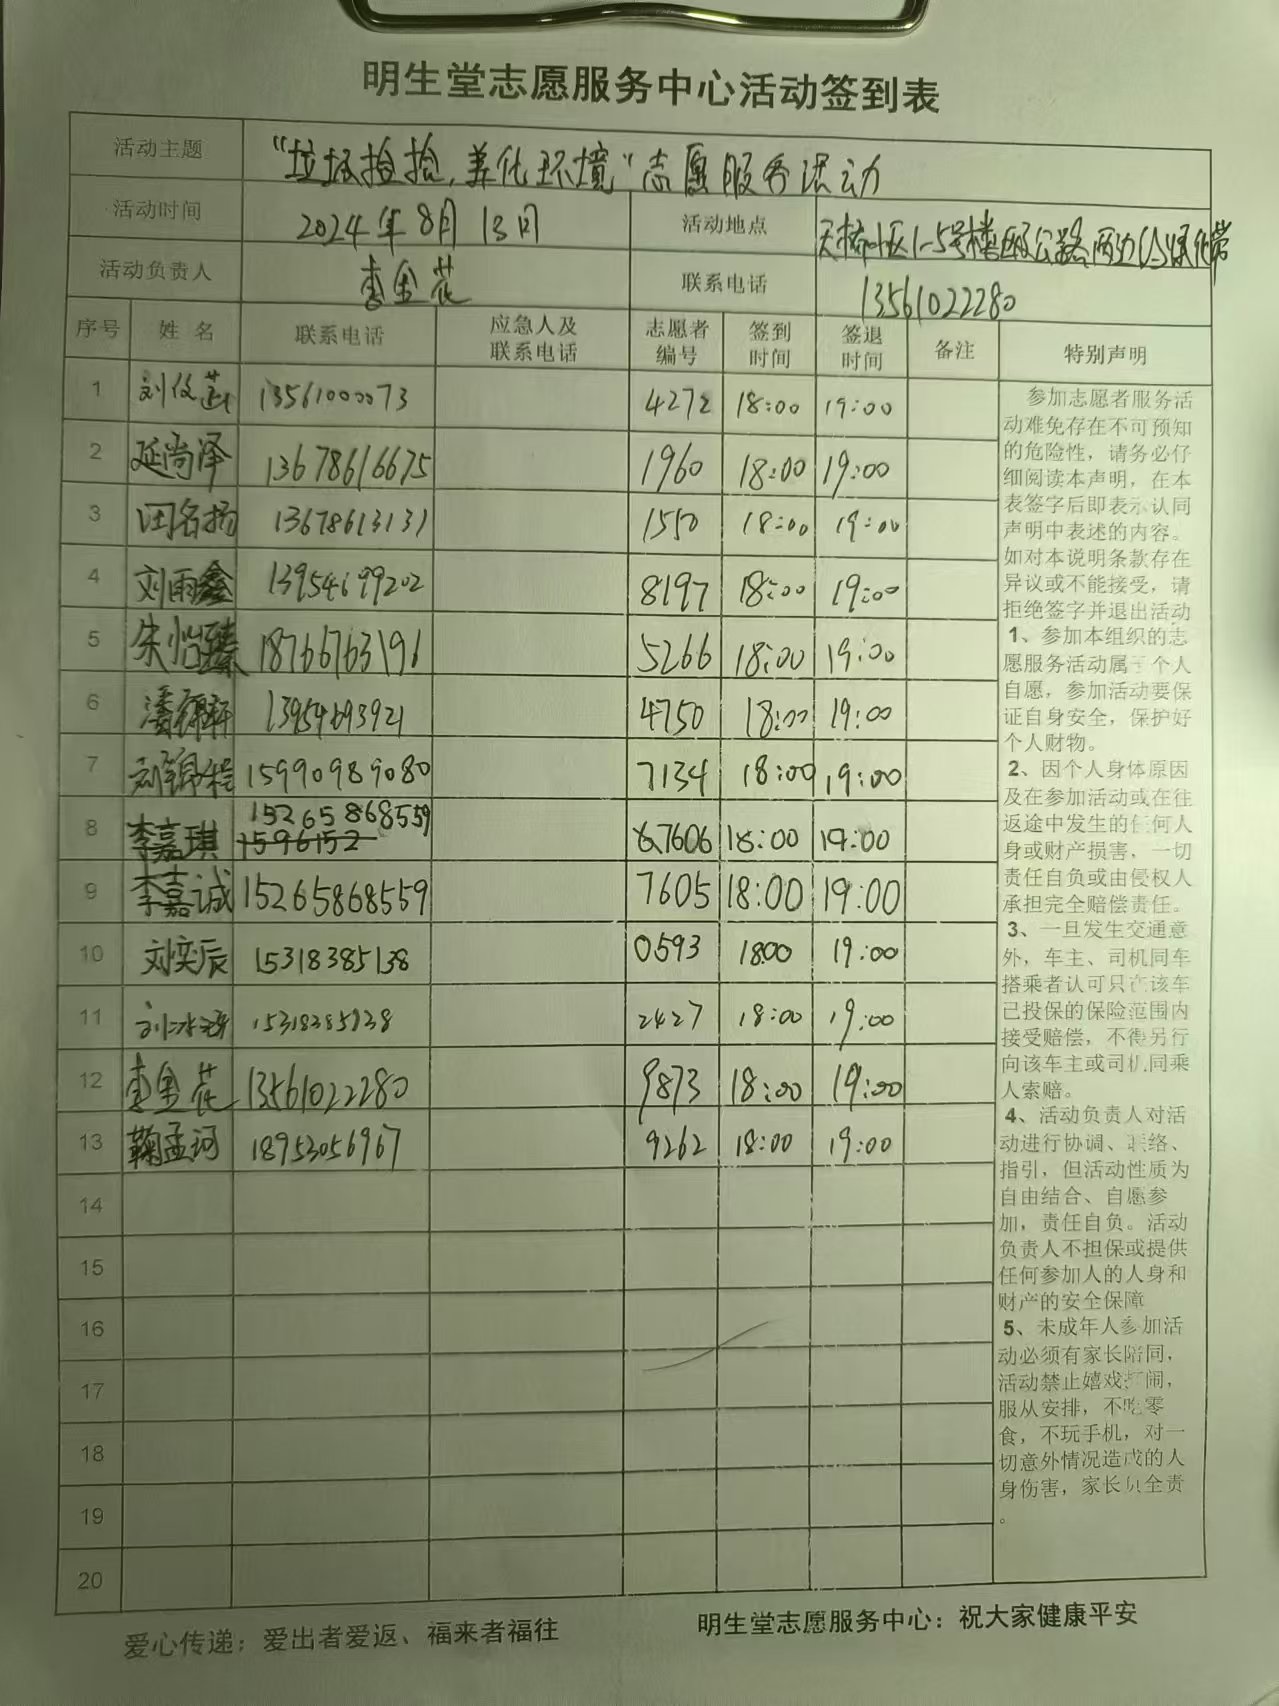 明生堂志愿服务中心活动签到表
活动主题 “垃圾捡拾,美化环境”志愿服务活动
活动时间 2024年8月13日 活动地点 天桥小区1-5号楼及公路两边绿化带
活动负责人 李金花 联系电话 13561022280
序号 姓名 联系电话 应急人及联系电话 志愿者编号 签到时间 签退时间 备注 特别声明
1 13561000073 4272 18:00 19:00
2 延尚泽 13678616675 1960 18:00 19:00
3 田名扬 13678613131 1550 18:00 19:00
4 刘雨鑫 13954699202 8197 18:00 19:00
5 朱怡臻 18766763196 5266 18:00 19:00
6 潘锦轩 13954693921 4750 18:00 19:00
7 刘锦程 15990989080 7134 18:00 19:00
8 李嘉琪 15265868559 1596152 7606 18:00 19:00
9 李嘉诚 15265868559 7605 18:00 19:00
10 刘奕辰 15318385138 0593 18:00 19:00
11 15318385138 2427 18:00 19:00
12 李金花 13561022280 9873 18:00 19:00
13 鞠孟珂 18953056967 9262 18:00 19:00
14
15
16
17
18
19
20
参加志愿者服务活
动难免存在不可预知
的危险性，请务必仔
细阅读本声明，在本
表签字后即表示认同
声明中表述的内容。
如对本说明条款存在
异议或不能接受，请
拒绝签字并退出活动
1、参加本组织的志
愿服务活动属于个人
自愿，参加活动要保
证自身安全，保护好
个人财物。
2、因个人身体原因
及在参加活动或在往
返途中发生的任何人
身或财产损害，一切
责任自负或由侵权人
承担完全赔偿责任。
3、一旦发生交通意
外，车主、司机同车
搭乘者认可只在该车
已投保的保险范围内
接受赔偿，不得另行
向该车主或司机同乘
人索赔。
4、活动负责人对活
动进行协调、联络、
指引，但活动性质为
自由结合、自愿参
加，责任自负。活动
负责人不担保或提供
任何参加人的人身和
财产的安全保障
5、未成年人参加活
动必须有家长陪同，
活动禁止嬉戏打闹，
服从安排，不吃零
食，不玩手机，对一
切意外情况造成的人
身伤害，家长负全责
。
爱心传递：爱出者爱返、福来者福往 明生堂志愿服务中心：祝大家健康平安